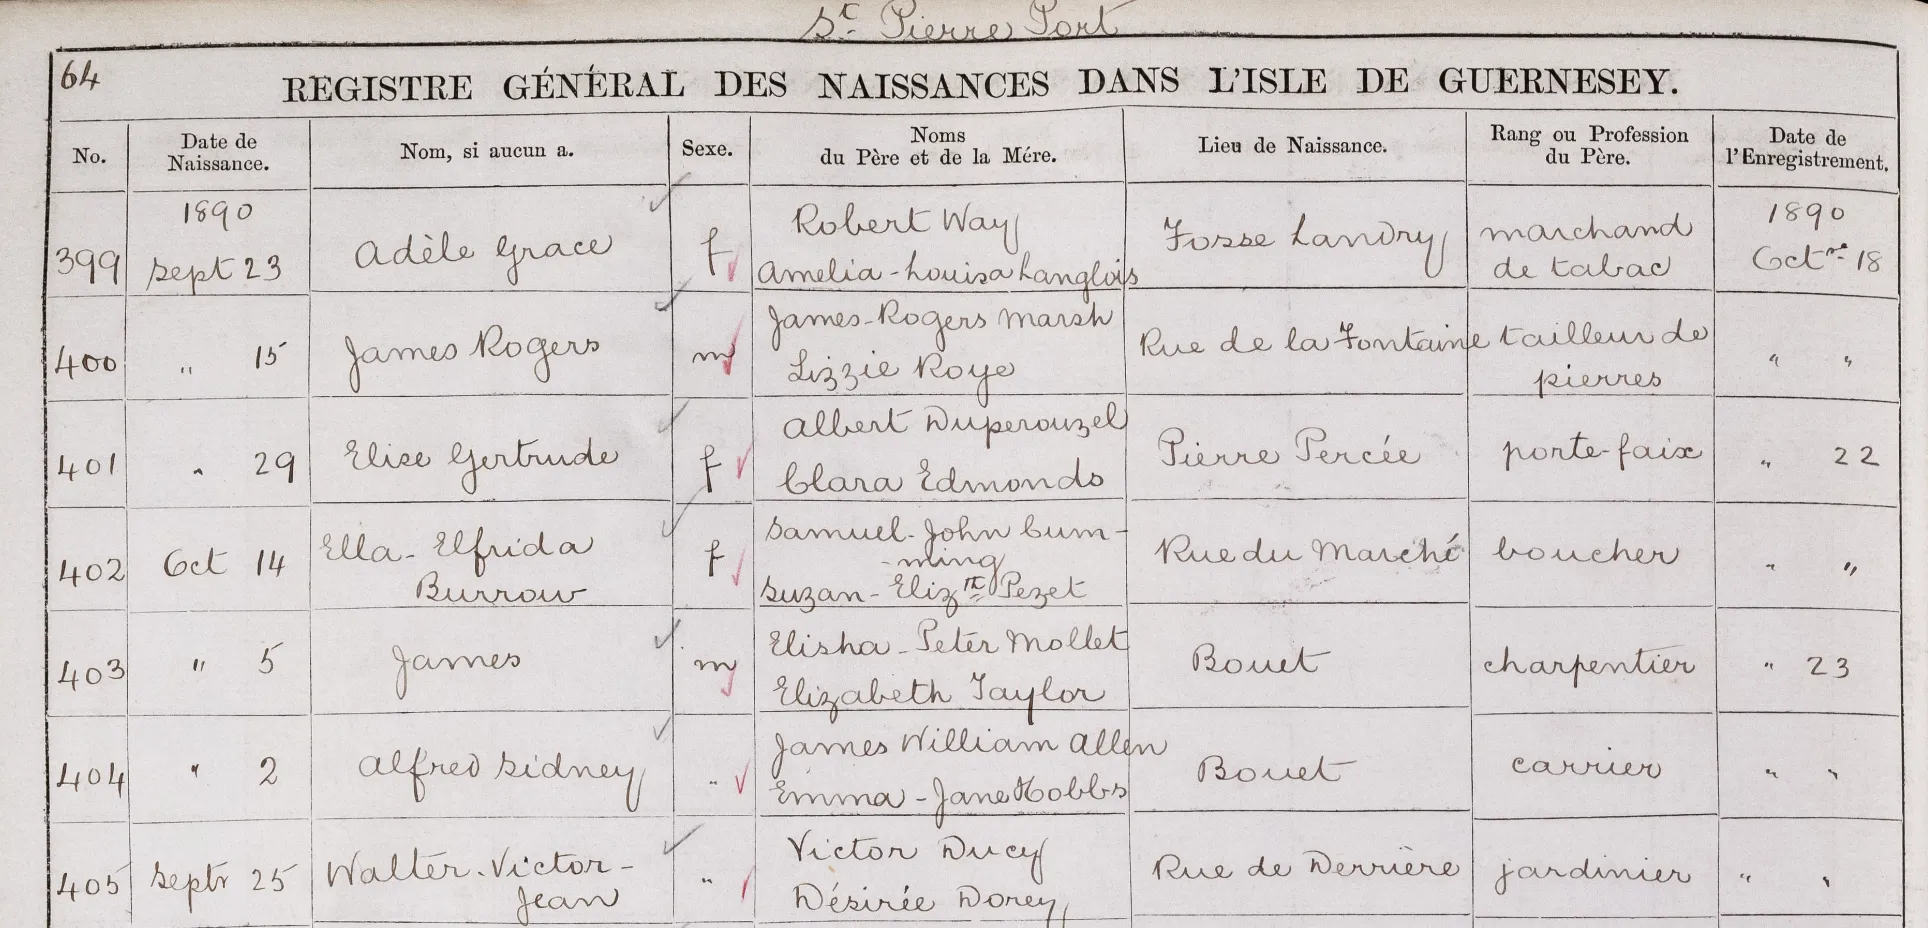 St Pierre Port
64
REGISTRE GÉNÉRAL DES NAISSANCES DANS L'ISLE DE GUERNESEY.
No.
Date de
Naissance.
Nom, si aucun a.
Sexe.
Noms
du Père et de la Mére.
Lieu de Naissance.
Rang ou Profession
du Père.
Date de
l'Enregistrement.
399
1890
Sept 23
Adèle Grace
f
Robert Way
Amelia-Louisa Langlois
Fosse Landry
marchand
de tabac
1890
Octre 18
400
" 15
James Rogers
m
James-Rogers Marsh
Lizzie Roye
Rue de la Fontaine
tailleur de
pierres
" "
401
" 29
Elise Gertrude
f
Albert Duperouzel
Clara Edmonds
Pierre Percée
porte-faix
" 22
402
Oct 14
Ella-Elfrida
Burrow
f
Samuel-John Cum-
-ming
Suzan-Elizth Pezet
Rue du Marché
boucher
" "
403
" 5
James
m
Elisha-Peter Mollet
Elizabeth Taylor
Bouet
charpentier
" 23
404
" 2
Alfred Sidney
"
James William Allen
Emma-Jane Hobbs
Bouet
carrier
" "
405
Septr 25
Walter-Victor-
Jean
"
Victor Ducy
Désirée Dorey
Rue de Derrière
jardinier
" "